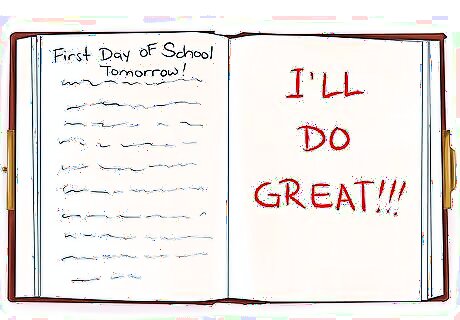 First Day of School
Tomorrow!
I'LL
DO
GREAT!!!